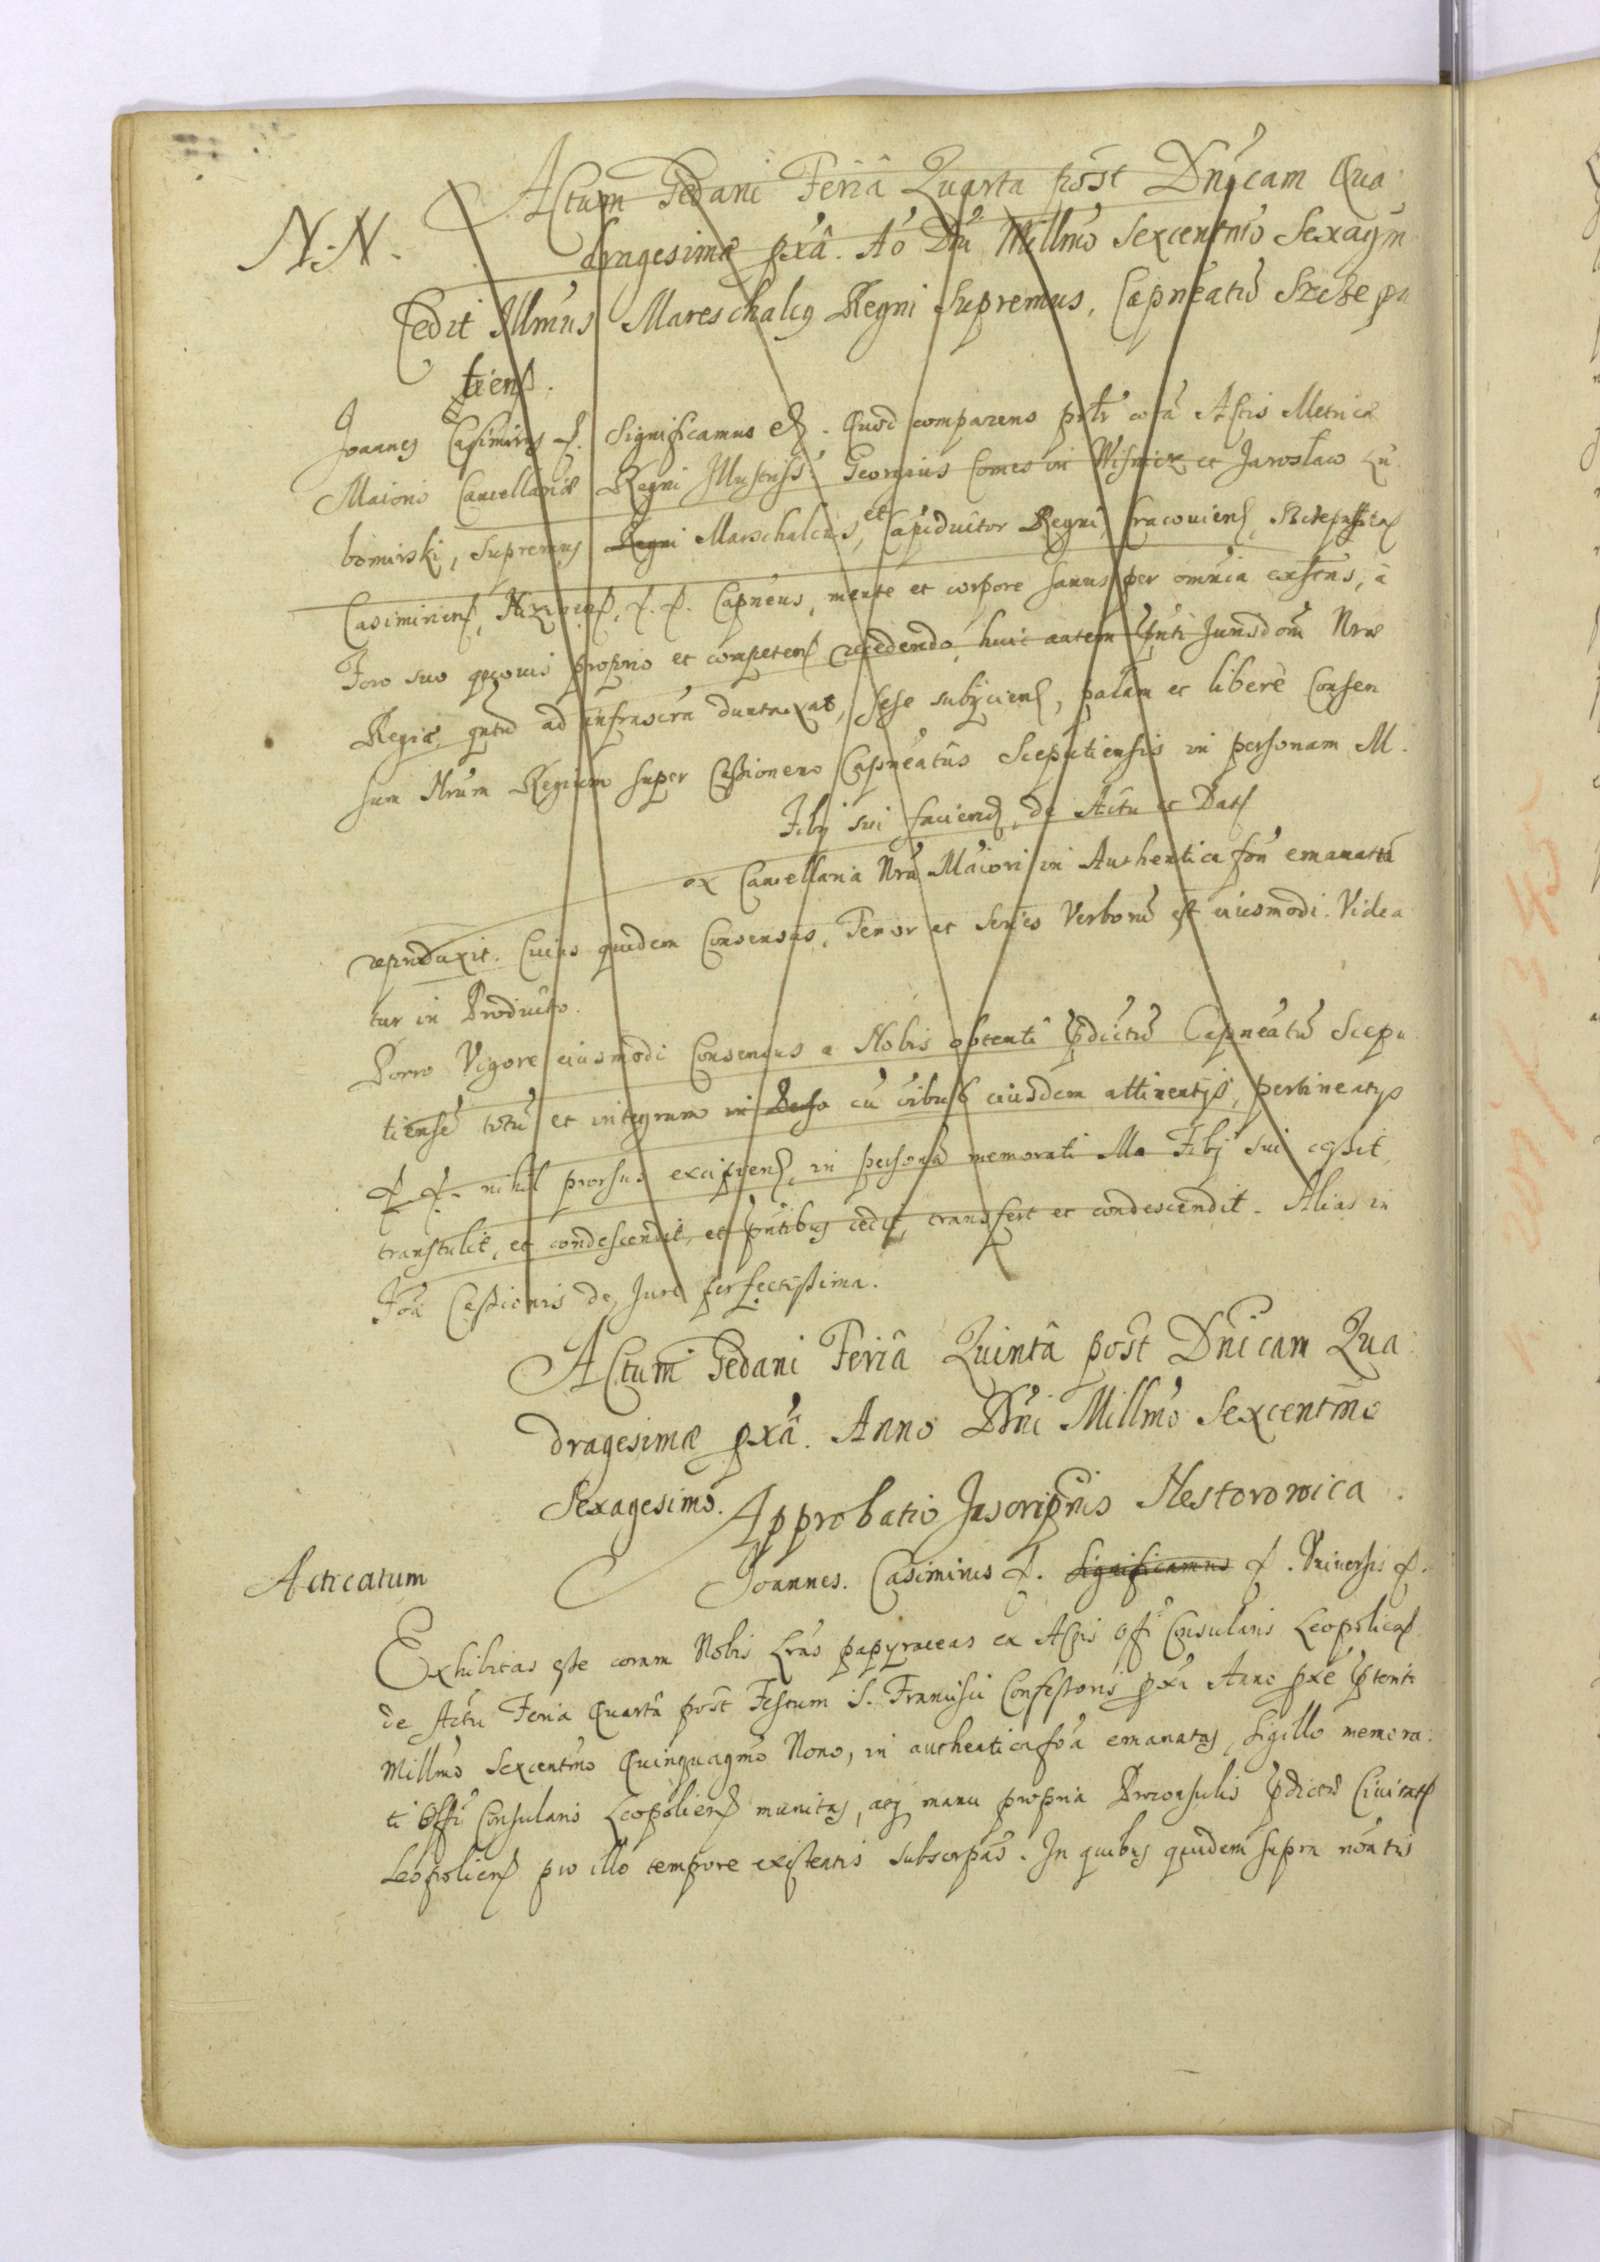 Actum Gedani Feriâ Quarta post Dnicam Qua
N. N.
dragesimæ pxâ. Ao Dni Millmo Sexcentmo Sexagm
Cedit Illmus Mareschalcus Regni Supremus, Capneatũ Szczepu
tiens.
Joannes Casimirus &. Significamus &. Quod comparens psltr corã Actis Metricæ
Maioris Cancellariæ Regni Illustriss. Georgius Comes in Wisnicz et Jaroslaw Lu
bomirski, Supremus Regni Marschalcus, et Campiductor Regni, Cracouiens,
Casimiriens, Nizinens, &. &. Capneus, mente et corpore sanus per omnia exstens, à
Foro suo quouis proprio et competens recedendo, huic autem pnti Jurisdomi Nræ
Regiæ, quad ad infrascra duntaxat, sese subijciens, palam et liberè Consen
sum Nrum Regium super Cessionem Capneatus Scepusiensis in personam M.
Filij sui faciend, de Actu et Dats
ex Cancellaria Nra Maiori in Authentica forã emanatũ
repnduxit. Cuius quidem Consensus, Tenor et Series Verborũ est eiusmodi. Videa
tur in Producto.
Porro Vigore eiusmodi Consensus a Nobis obtenti pdictũ Capneatũ Scepu
tiensẽ totũ et integrum cũ oibus eiusdem attinentijs, pertinentijs
&. &. nihil prorsus excipiens, in personã memorati M. Filij sui cessit,
transtulit, et condescendit, et pntibus cedit, transfert et condescendit. Alias in
Foã Cessionis de Jure perfectissima.
Actum Gedani Feriâ Quintâ post Dnicam Qua
dragesimæ pxâ. Anno Dni Millmo Sexcentmo
Sexagesimo.
Approbatio Inscripnis Nestorowica.
Acticatum
Joannes. Casimirus &. Significamus &. Vniuersis &.
Exhibitas esse coram Nobis Lras papyraceas ex Actis Offi Consularis Leopolien
de Actu Feria Quartâ post Festum S. Francisci Confessoris pxa Anno pxe pterito
Millmo Sexcentmo Quinquagmo Nono, in authentica foâ emanatas, Sigillo memora
ti Offi Consularis Leopoliens munitas, atq manu propria Proconsulis pdictæ Ciuitatis
Leopoliens pro illo tempore existentis subscrptas. In quibus quidem supra noatis